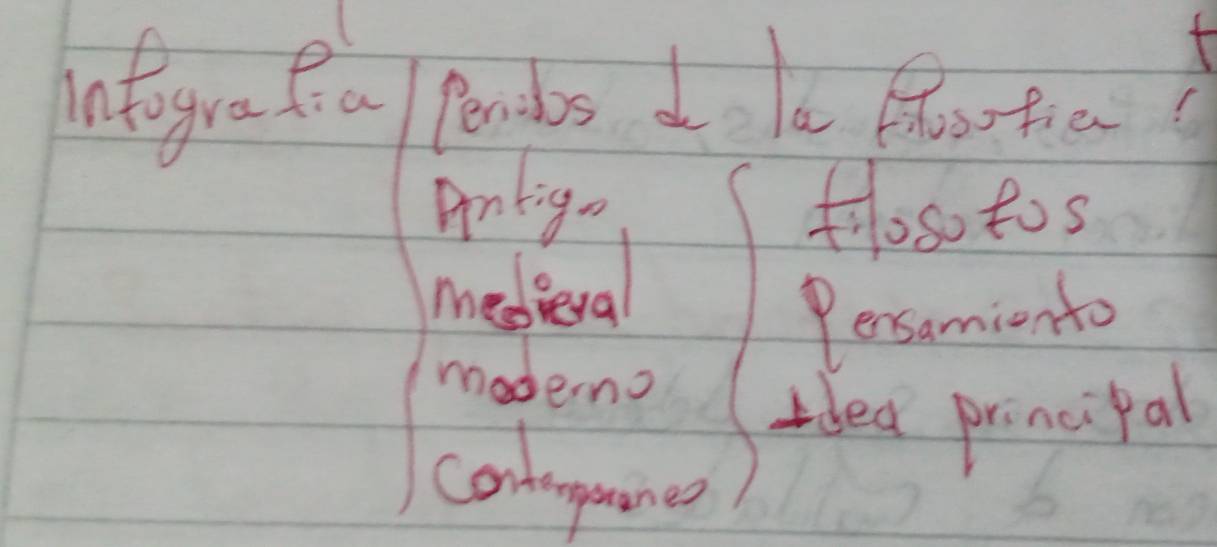 Infografia Periodos de la filosofia
Antigo filosofos
medieval Pensamiento
moderno Idea principal
Contemporaneo